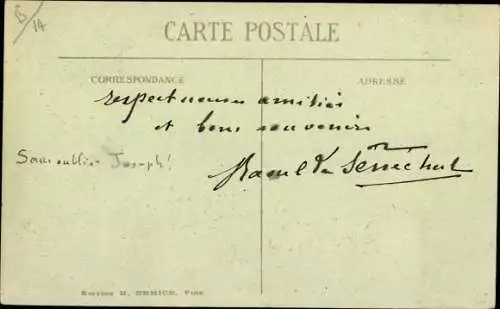 B/14
CARTE POSTALE
CORRESPONDANCE
ADRESSE
respectueuses amitiés
et bons souvenirs
Sans oublier Joseph!
Sénéchal
H.